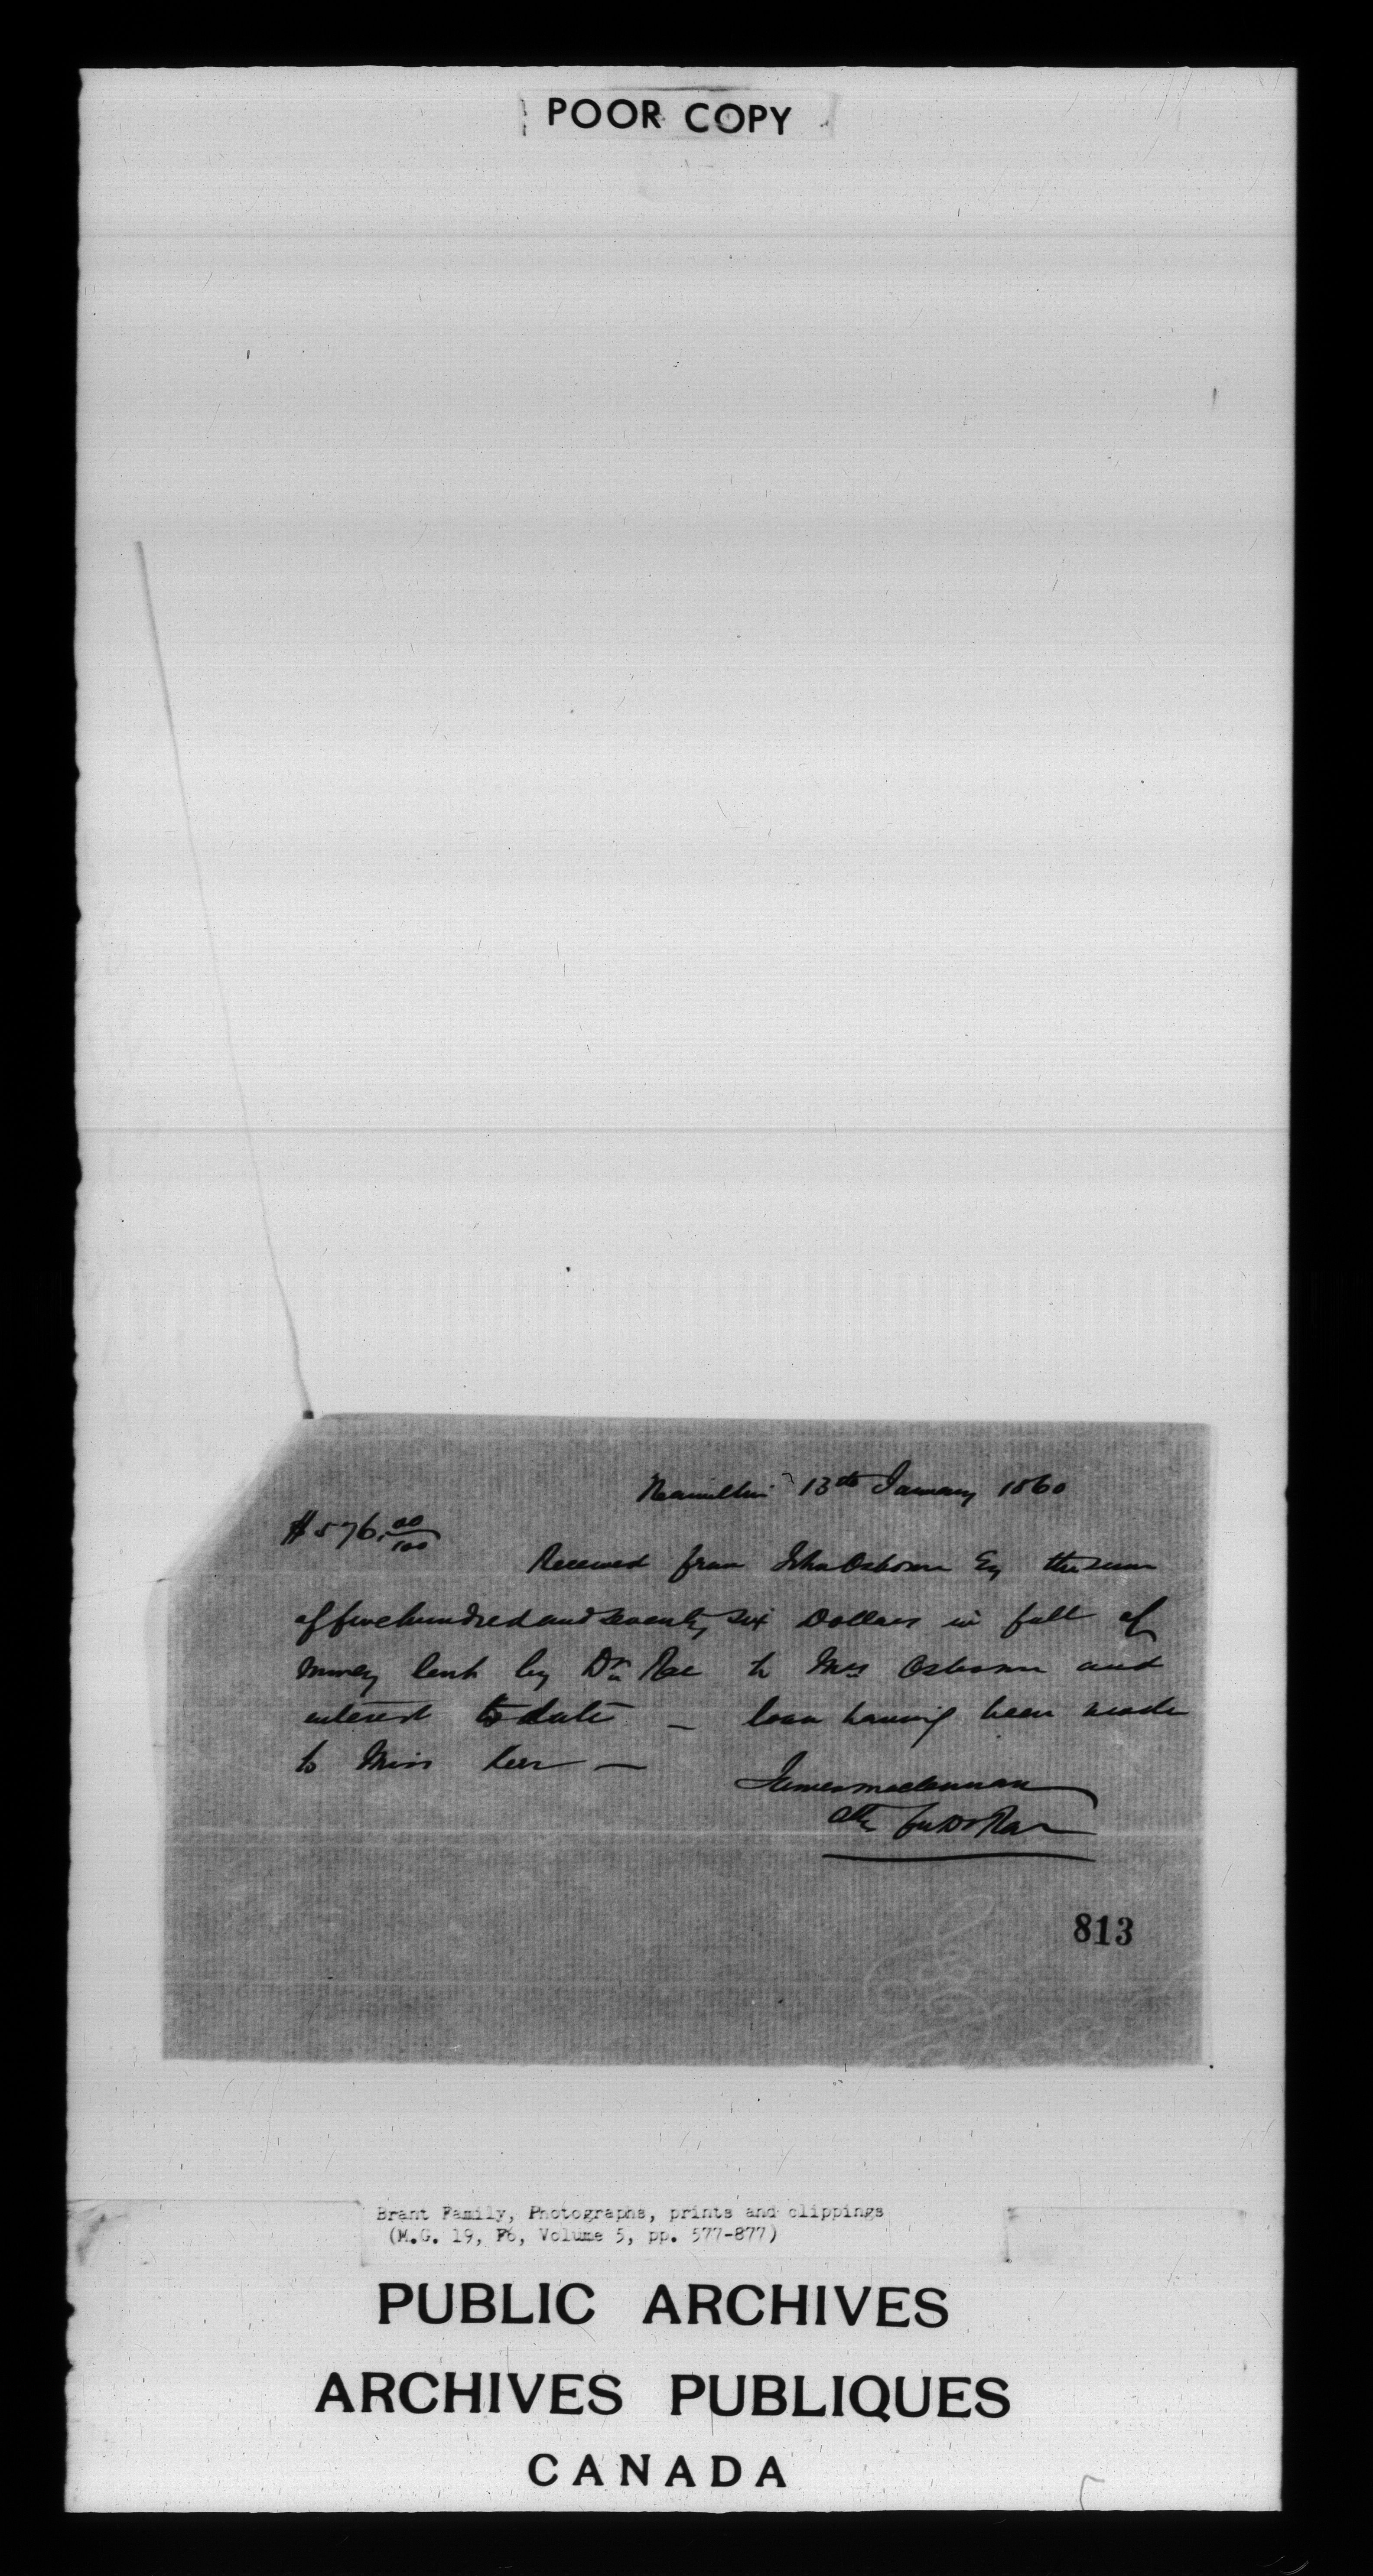 POOR COPY
Hamilton 13th January 1860
$576.00/100
Received from John Osborne Esq the sum
of five hundred and seventy six Dollars in full of
money lent by Dr Rae to Mrs Osborne and
interest to date — loan having been made
to Miss Kerr —
James Maclennan
Atty for Dr Rae
813
Brant Family, Photographs, prints and clippings
(M.G. 19, F6, Volume 5, pp. 577-877)
PUBLIC ARCHIVES
ARCHIVES PUBLIQUES
CANADA